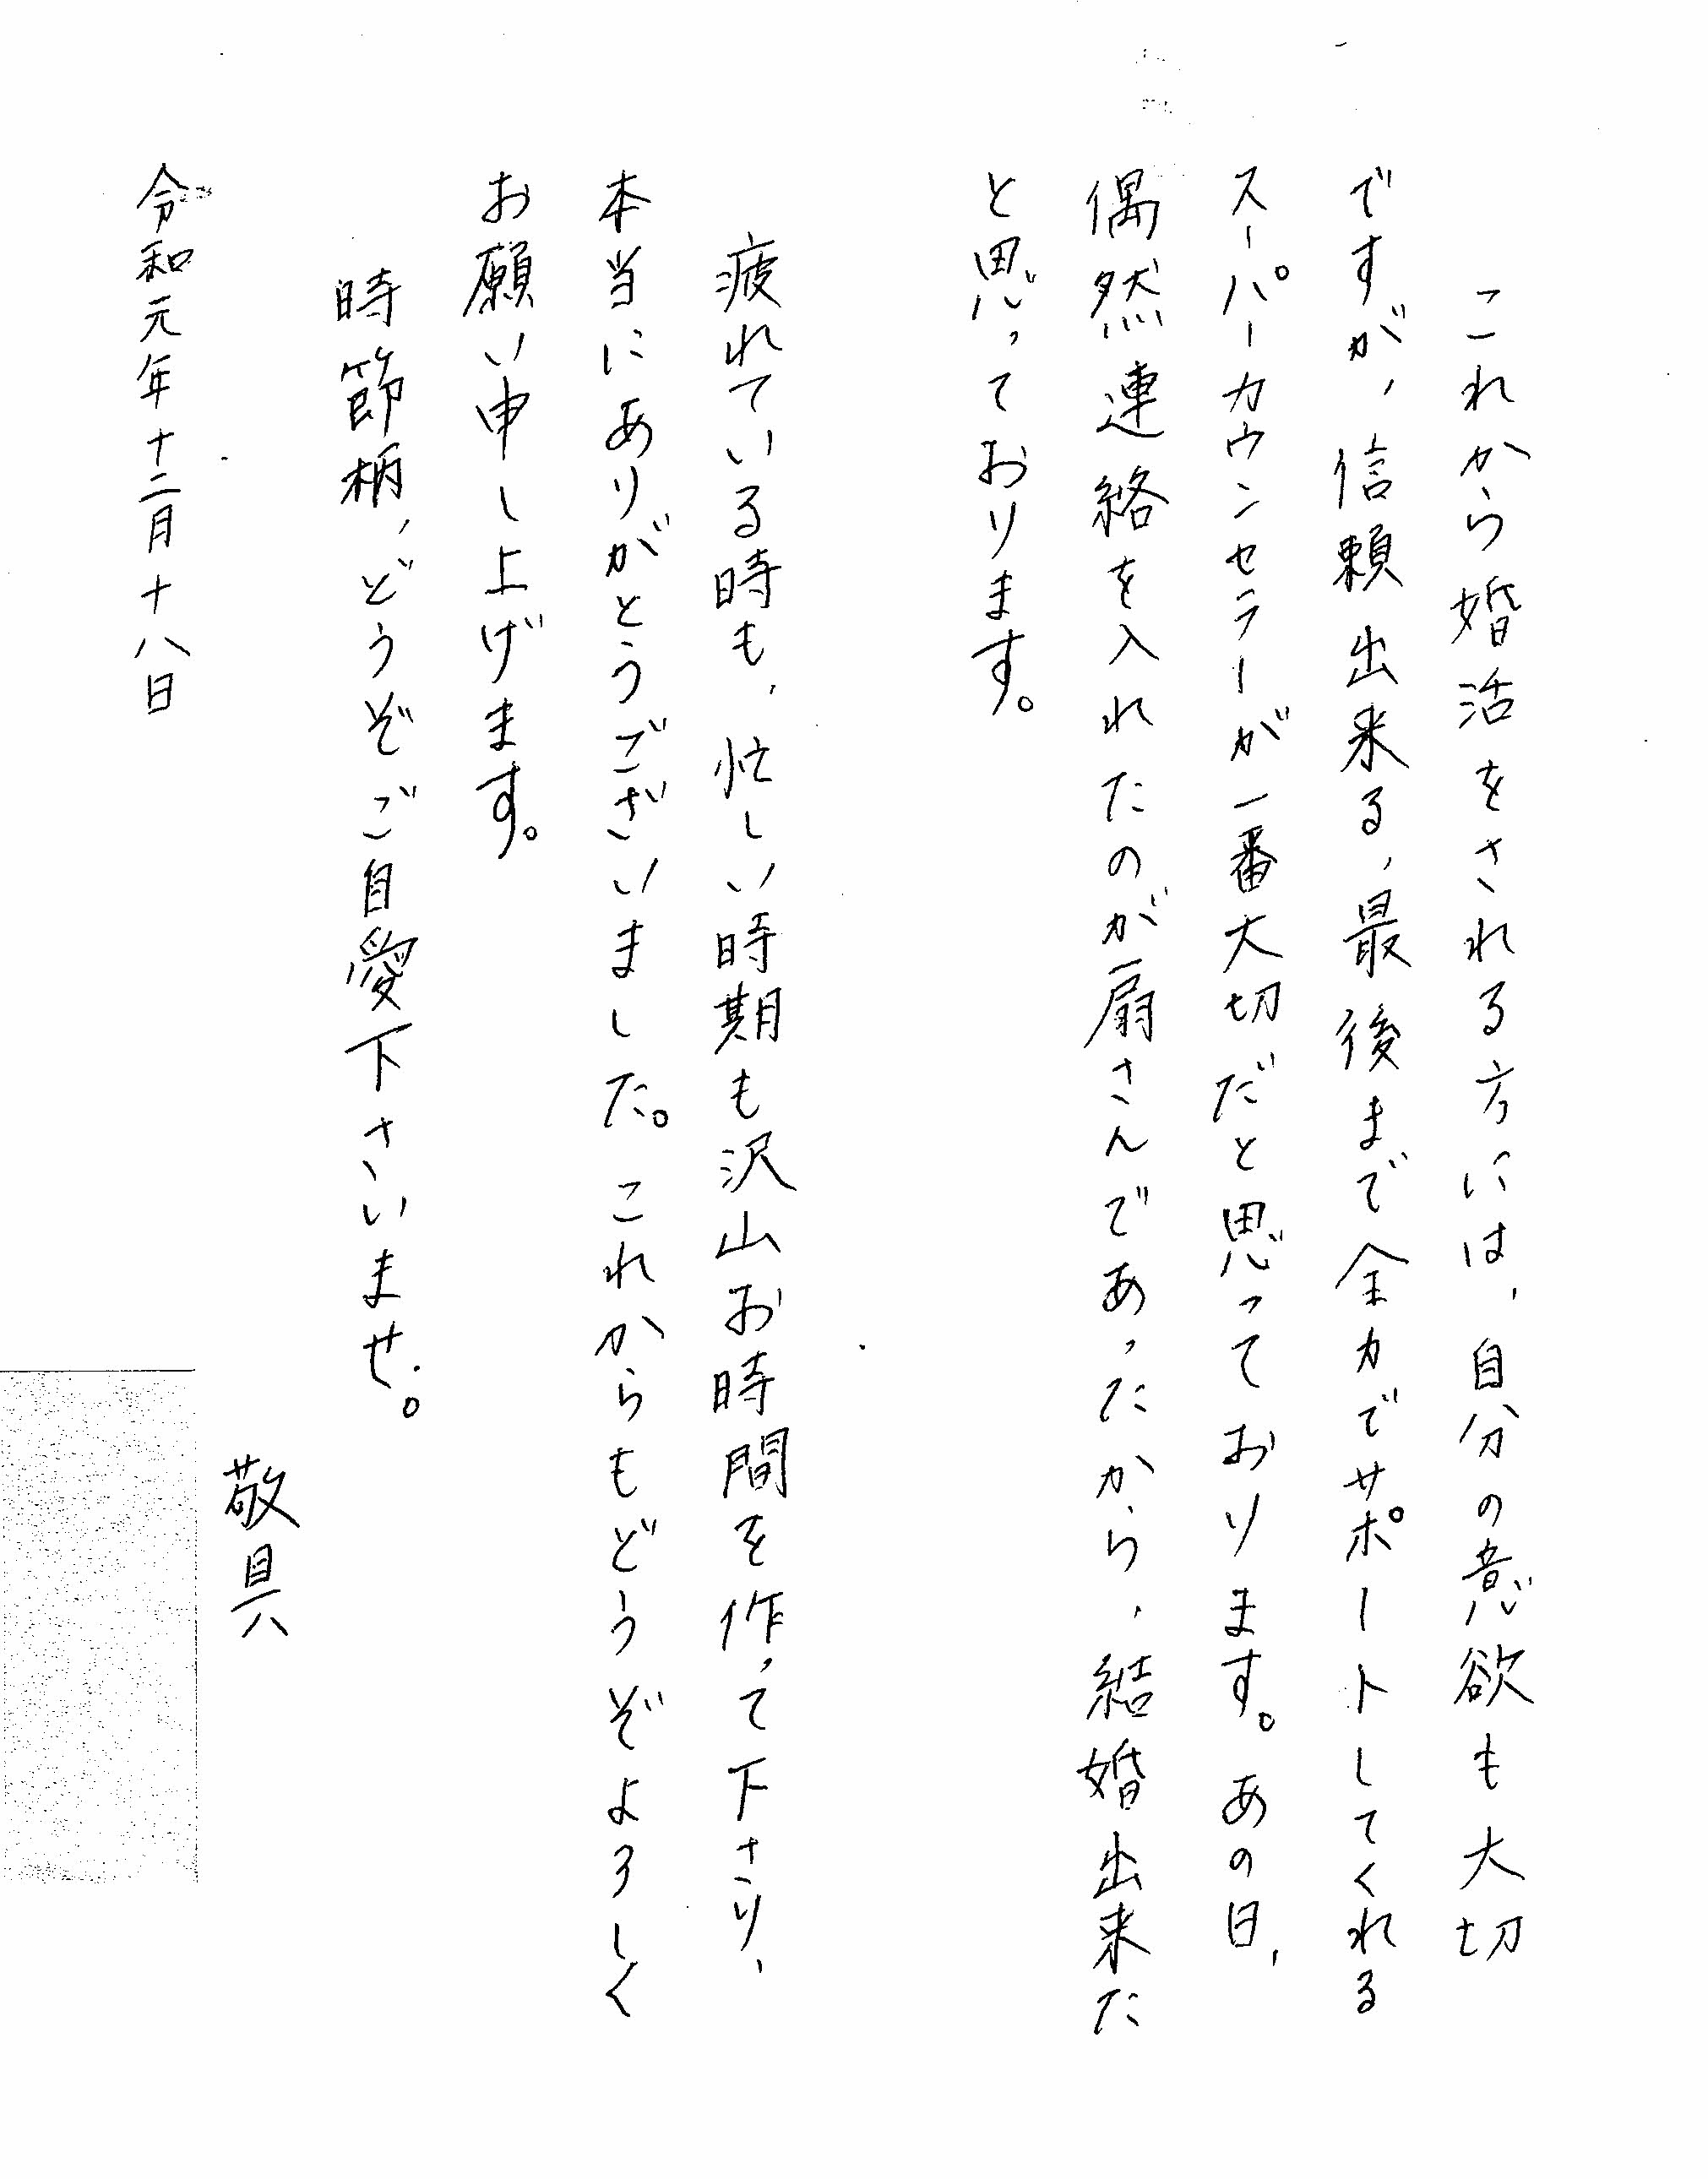 これから婚活をされる方には、自分の意欲も大切
ですが、信頼出来る、最後まで全力でサポートしてくれる
スーパーカウンセラーが一番大切だと思っております。あの日、
偶然連絡を入れたのが扇さんであったから、結婚出来た
と思っております。
疲れている時も、忙しい時期も沢山お時間を作って下さり、
本当にありがとうございました。これからもどうぞよろしく
お願い申し上げます。
時節柄、どうぞご自愛下さいませ。
敬具
令和元年十二月十八日